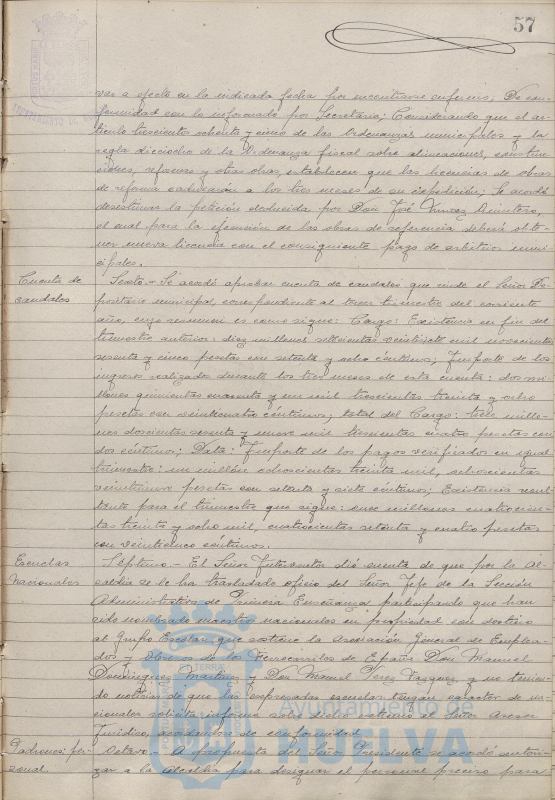 57
var a efecto en la indicada fecha por encontrarse enfermo; De con-
formidad con lo informado por Secretaría; Considerando que el ar-
tículo trescientos ochenta y cinco de las Ordenanzas municipales y la
regla dieciocho de la Ordenanza fiscal sobre alineaciones, construc-
ciones, reformas y otras obras, establecen que las licencias de obras
de reforma caducarán a los tres meses de su expedición; Se acordó
desestimar la petición deducida por Don José Quintero,
el cual para la ejecución de las obras de referencia deberá obte-
ner nueva licencia con el consiguiente pago de arbitrios muni-
cipales.
Cuenta de
caudales
Sexto.- Se acordó aprobar cuenta de caudales que rinde el Señor De-
positario municipal, correspondiente al tercer trimestre del corriente
año, cuyo resumen es como sigue: Cargo: Existencia en fin del
trimestre anterior: diez millones setecientos veintisiete mil novecientas
sesenta y cinco pesetas con setenta y ocho céntimos; Importe de los
ingresos realizados durante los tres meses de esta cuenta: dos mi-
llones quinientas cuarenta y un mil trescientas treinta y ocho
pesetas con veinticuatro céntimos; total del Cargo: trece millo-
nes doscientas sesenta y nueve mil trescientas cuatro pesetas con
dos céntimos; Data: Importe de los pagos verificados en igual
trimestre: un millón ochocientas treinta mil, ochocientas
veintinueve pesetas con setenta y siete céntimos; Existencia resul-
tante para el trimestre que sigue: once millones cuatrocien-
tas treinta y ocho mil, cuatrocientas setenta y cuatro pesetas
con veinticinco céntimos.
Escuelas
Nacionales
Séptimo.- El Señor Interventor dió cuenta de que por la Al-
caldía se le ha trasladado oficio del Señor Jefe de la Sección
Administrativa de Primera Enseñanza, participando que han
sido nombrados maestros nacionales en propiedad con destino
al Grupo Escolar que sostiene la Asociación General de Emplea-
dos y Obreros de los Ferrocarriles de España Don Manuel
Domínguez Martín y Don Manuel Pérez Vázquez, y no tenien-
do noticias de que las expresadas escuelas tengan carácter de na-
cionales solicita informe sobre dicho extremo al Señor Asesor
Jurídico, acordándose de conformidad.
Padrones: per-
sonal.
Octavo.- A propuesta del Señor Presidente se acordó autori-
zar a la Alcaldía para designar el personal preciso para
Ayuntamiento de
HUELVA